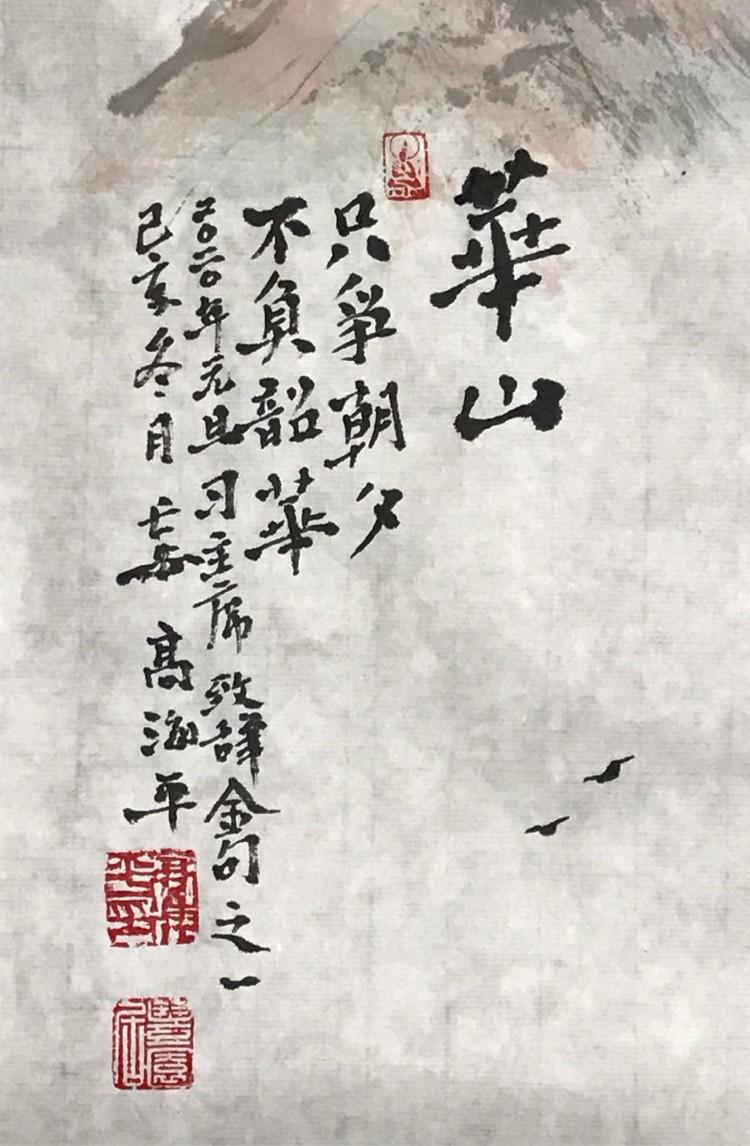 華山
只爭朝夕
不負韶華
二〇二〇年元旦习主席致辞金句之一
己亥冬月 長安 高海平